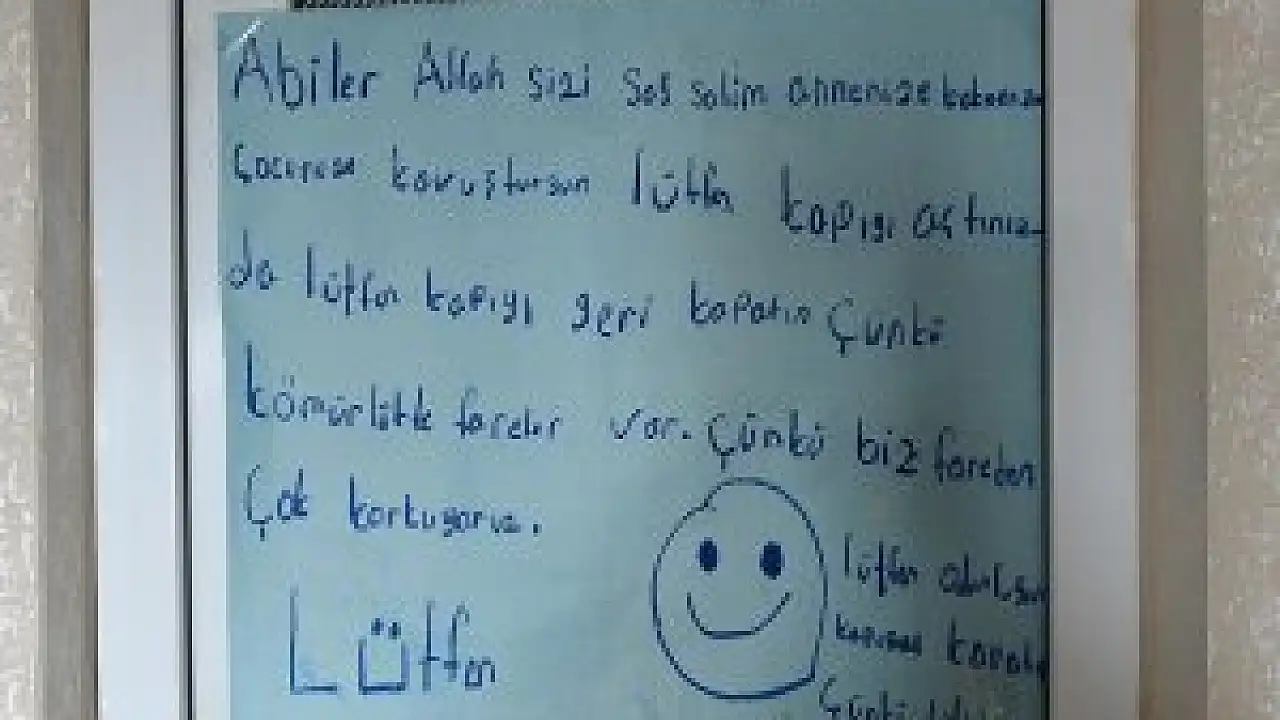 Abiler Allah sizi sağ salim annenize babanıza
Çocunuza kavuştursun lütfn kapıyı açtınız
da lütfn kapıyı geri kapatın Çünkü
kömürlükte fareler var. Çünkü biz fareden
Çok korkuyoruz.
lütfn
kapımızı
Lütfn
Çünkü